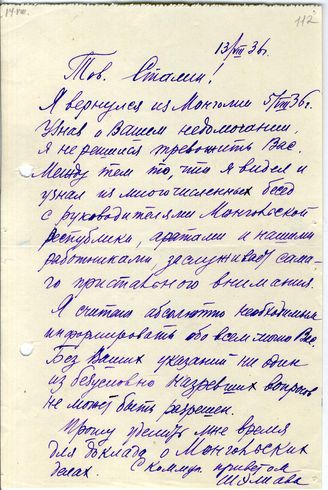 112
13/VIII 36г.
Тов. Сталин!
Я вернулся из Монголии 5/VIII 36г.
Узнав о Вашем недомогании,
я не решился тревожить Вас.
Между тем то, что я видел и
узнал из многочисленных бесед
с руководителями Монгольской
республики, аратами и нашими
работниками, заслуживает само-
го пристального внимания.
Я считаю абсолютно необходимым
информировать обо всем этом Вас.
Без Ваших указаний ни один
из безусловно назревших вопросов
не может быть разрешен.
Прошу уделить мне время
для доклада о Монгольских
делах. С коммун. приветом